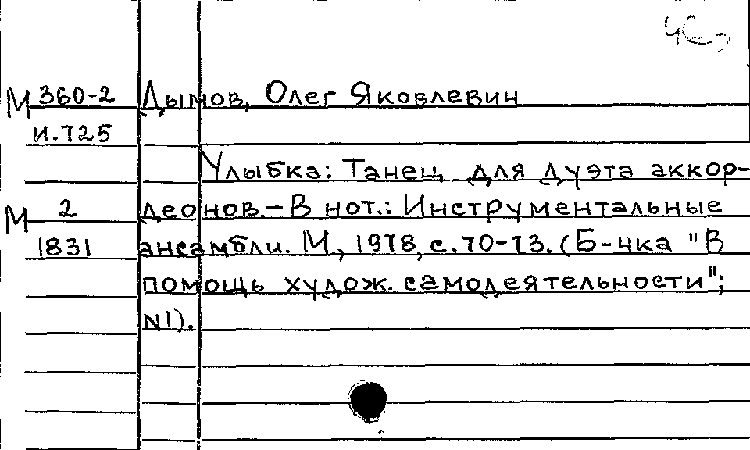 М 360-2 Дымов, Олег Яковлевич
И.725
Улыбка: Танец для дуэта аккор-
М 2 деонов. – В нот.: Инструментальные
1831 ансамбли. М., 1978, с.70-73. (Б-чка "В
помощь худож. самодеятельности";
N1).